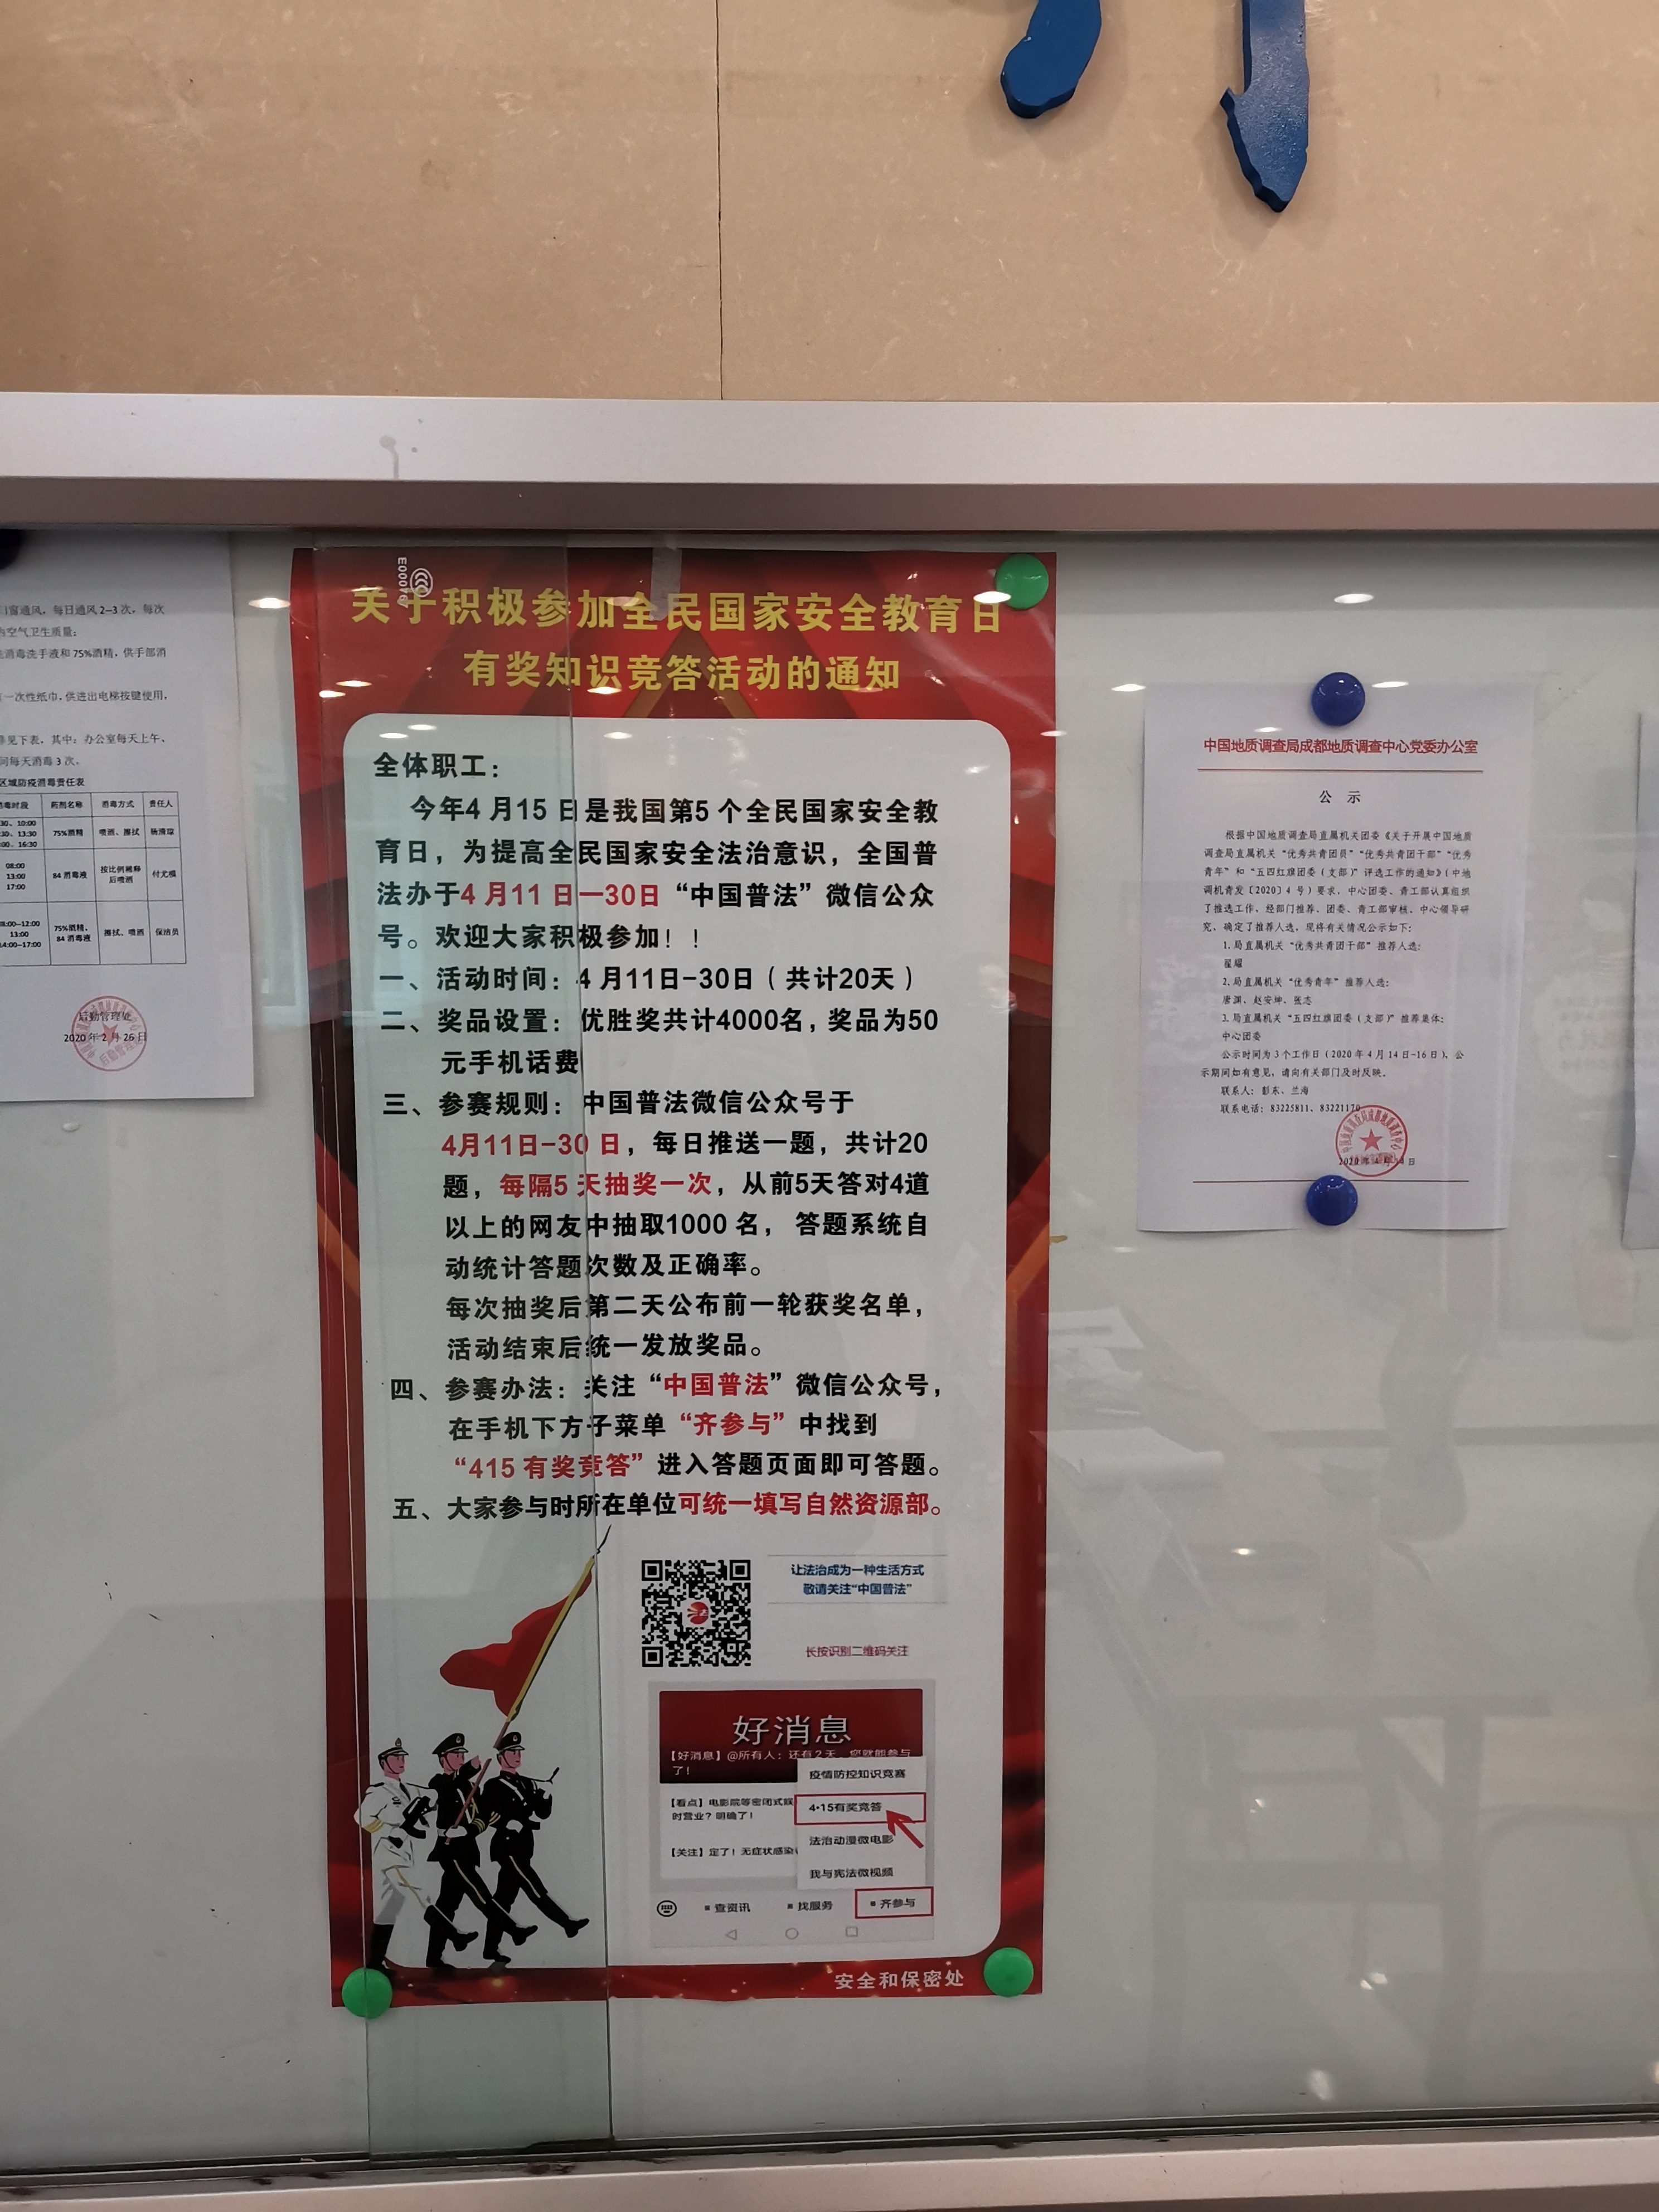 门窗通风，每日通风2–3次，每次
空气卫生质量；
消毒洗手液和75%酒精，供手部消
一次性纸巾，供进出电梯按键使用，
见下表，其中：办公室每天上午、
间每天消毒3次。
区域防疫消毒责任表
毒时段 药剂名称 消毒方式 责任人
30、10:00
30、13:30
00、16:30
75%酒精 喷洒、擦拭
08:00
13:00
17:00
84消毒液 按比例稀释后喷洒
8:00–12:00
13:00
14:00–17:00
75%酒精、84消毒液 擦拭、喷洒 保洁员
后勤管理处
2020年2月26日
E000767
关于积极参加全民国家安全教育日
有奖知识竞答活动的通知
全体职工：
今年4月15日是我国第5个全民国家安全教
育日，为提高全民国家安全法治意识，全国普
法办于4月11日—30日“中国普法”微信公众
号。欢迎大家积极参加！！
一、活动时间：4月11日-30日（共计20天）
二、奖品设置：优胜奖共计4000名，奖品为50
元手机话费
三、参赛规则：中国普法微信公众号于
4月11日-30日，每日推送一题，共计20
题，每隔5天抽奖一次，从前5天答对4道
以上的网友中抽取1000名，答题系统自
动统计答题次数及正确率。
每次抽奖后第二天公布前一轮获奖名单，
活动结束后统一发放奖品。
四、参赛办法：关注“中国普法”微信公众号，
在手机下方子菜单“齐参与”中找到
“415有奖竞答”进入答题页面即可答题。
五、大家参与时所在单位可统一填写自然资源部。
让法治成为一种生活方式
敬请关注“中国普法”
长按识别二维码关注
好消息
【好消息】@所有人：还有2天，您就能参与
了！
疫情防控知识竞赛
【看点】电影院等密闭式娱
时营业？明确了！
4·15有奖竞答
法治动漫微电影
【关注】定了！无症状感染
我与宪法微视频
查资讯 找服务 齐参与
安全和保密处
中国地质调查局成都地质调查中心党委办公室
公 示
根据中国地质调查局直属机关团委《关于开展中国地质
调查局直属机关“优秀共青团员”“优秀共青团干部”“优秀
青年”和“五四红旗团委（支部）”评选工作的通知》（中地
调机青发〔2020〕4号）要求，中心团委、青工部认真组织
了推选工作，经部门推荐、团委、青工部审核、中心领导研
究，确定了推荐人选，现将有关情况公示如下：
1.局直属机关“优秀共青团干部”推荐人选：
翟耀
2.局直属机关“优秀青年”推荐人选：
唐渊、赵安坤、张志
3.局直属机关“五四红旗团委（支部）”推荐集体：
中心团委
公示时间为3个工作日（2020年4月14日-16日），公
示期间如有意见，请向有关部门及时反映。
联系人：彭东、兰海
联系电话：83225811、83221170